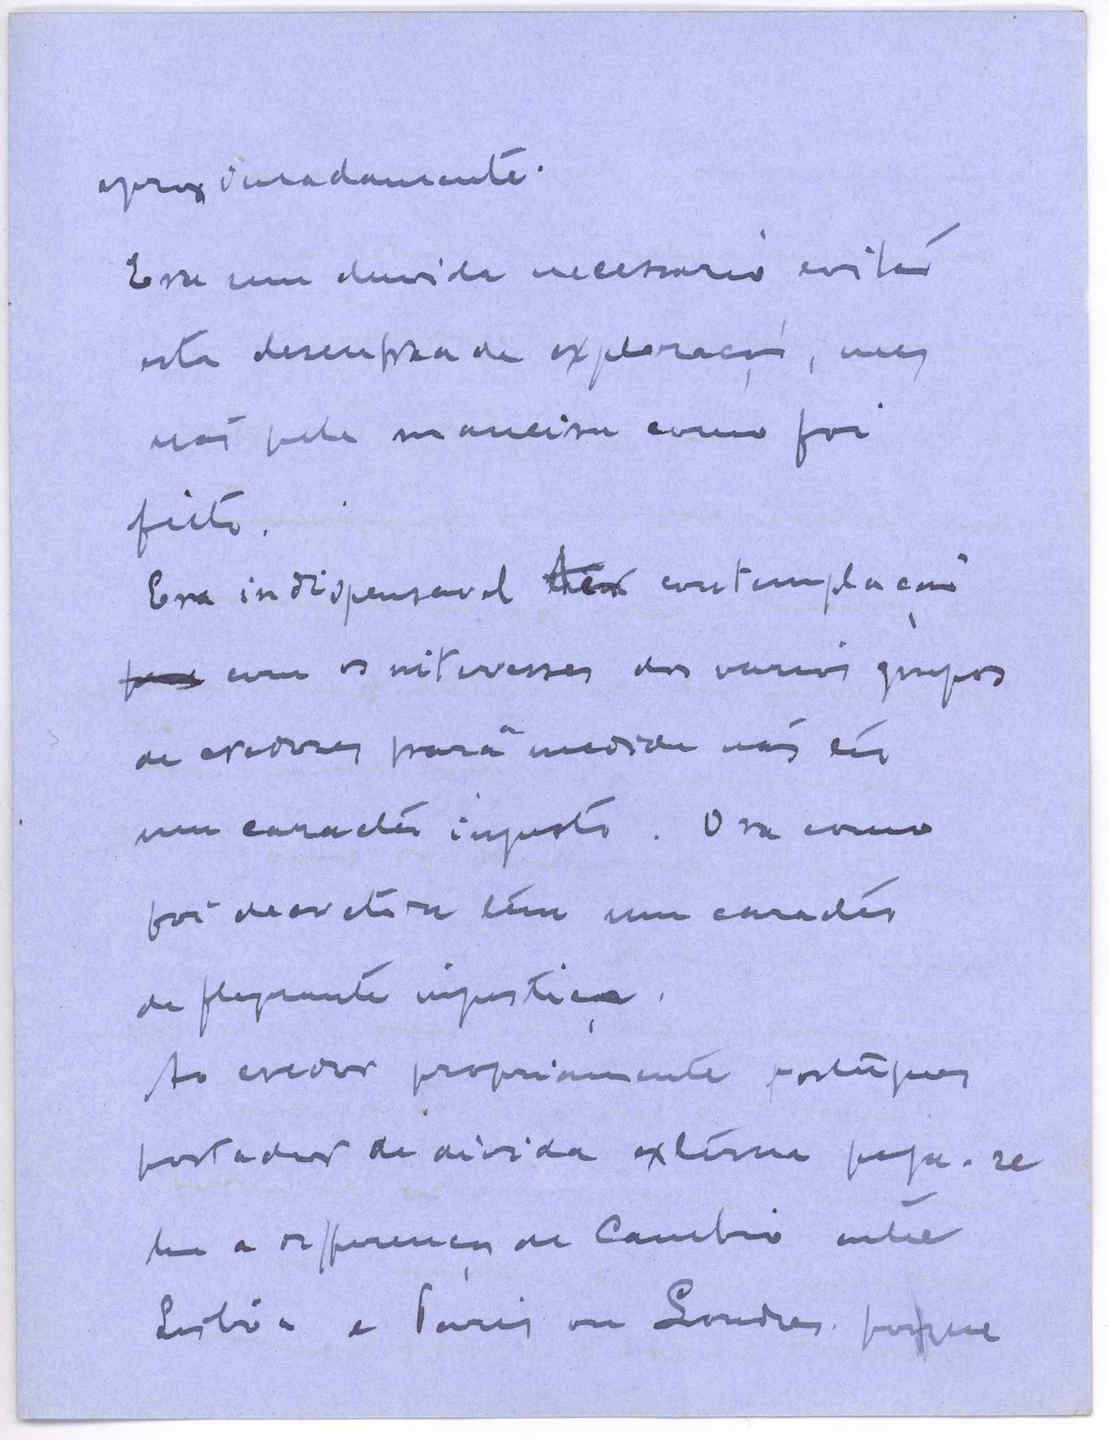 aproximadamente.
Era sem duvida necessario evitar
esta desenfreada exploração, mas
não pela maneira como foi
feito.
Era indispensavel ter contemplação
com os interesses dos varios grupos
de credores para a medida não ter
um caracter injusto. Ora como
foi decretada tem um caracter
de flagrante injustiça.
Ao credor propriamente português
portador de divida externa paga-se
lhe a differença de Cambio entre
Lisbôa e Paris ou Londres. porque